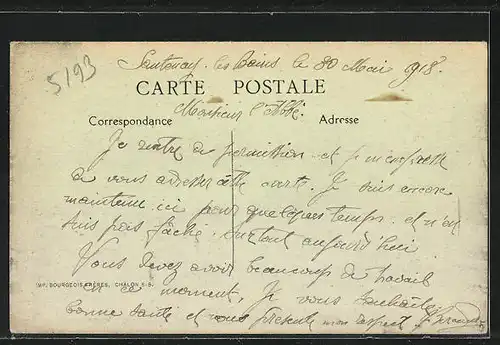 5193
Santenay-les-Bains, le 30 Mai 1918.
CARTE POSTALE
Monsieur l'Abbé.
Correspondance
Adresse
Je rentre de permission et je m'empresse
de vous adresser cette carte. Je suis encore
maintenu ici pour quelques temps et n'en
suis pas fâché, surtout aujourd'hui.
Vous devez avoir beaucoup de travail
IMP. BOURGEOIS FRÈRES, CHALON-S-S.
en ce moment, Je vous souhaite
bonne santé et vous présente mon respect